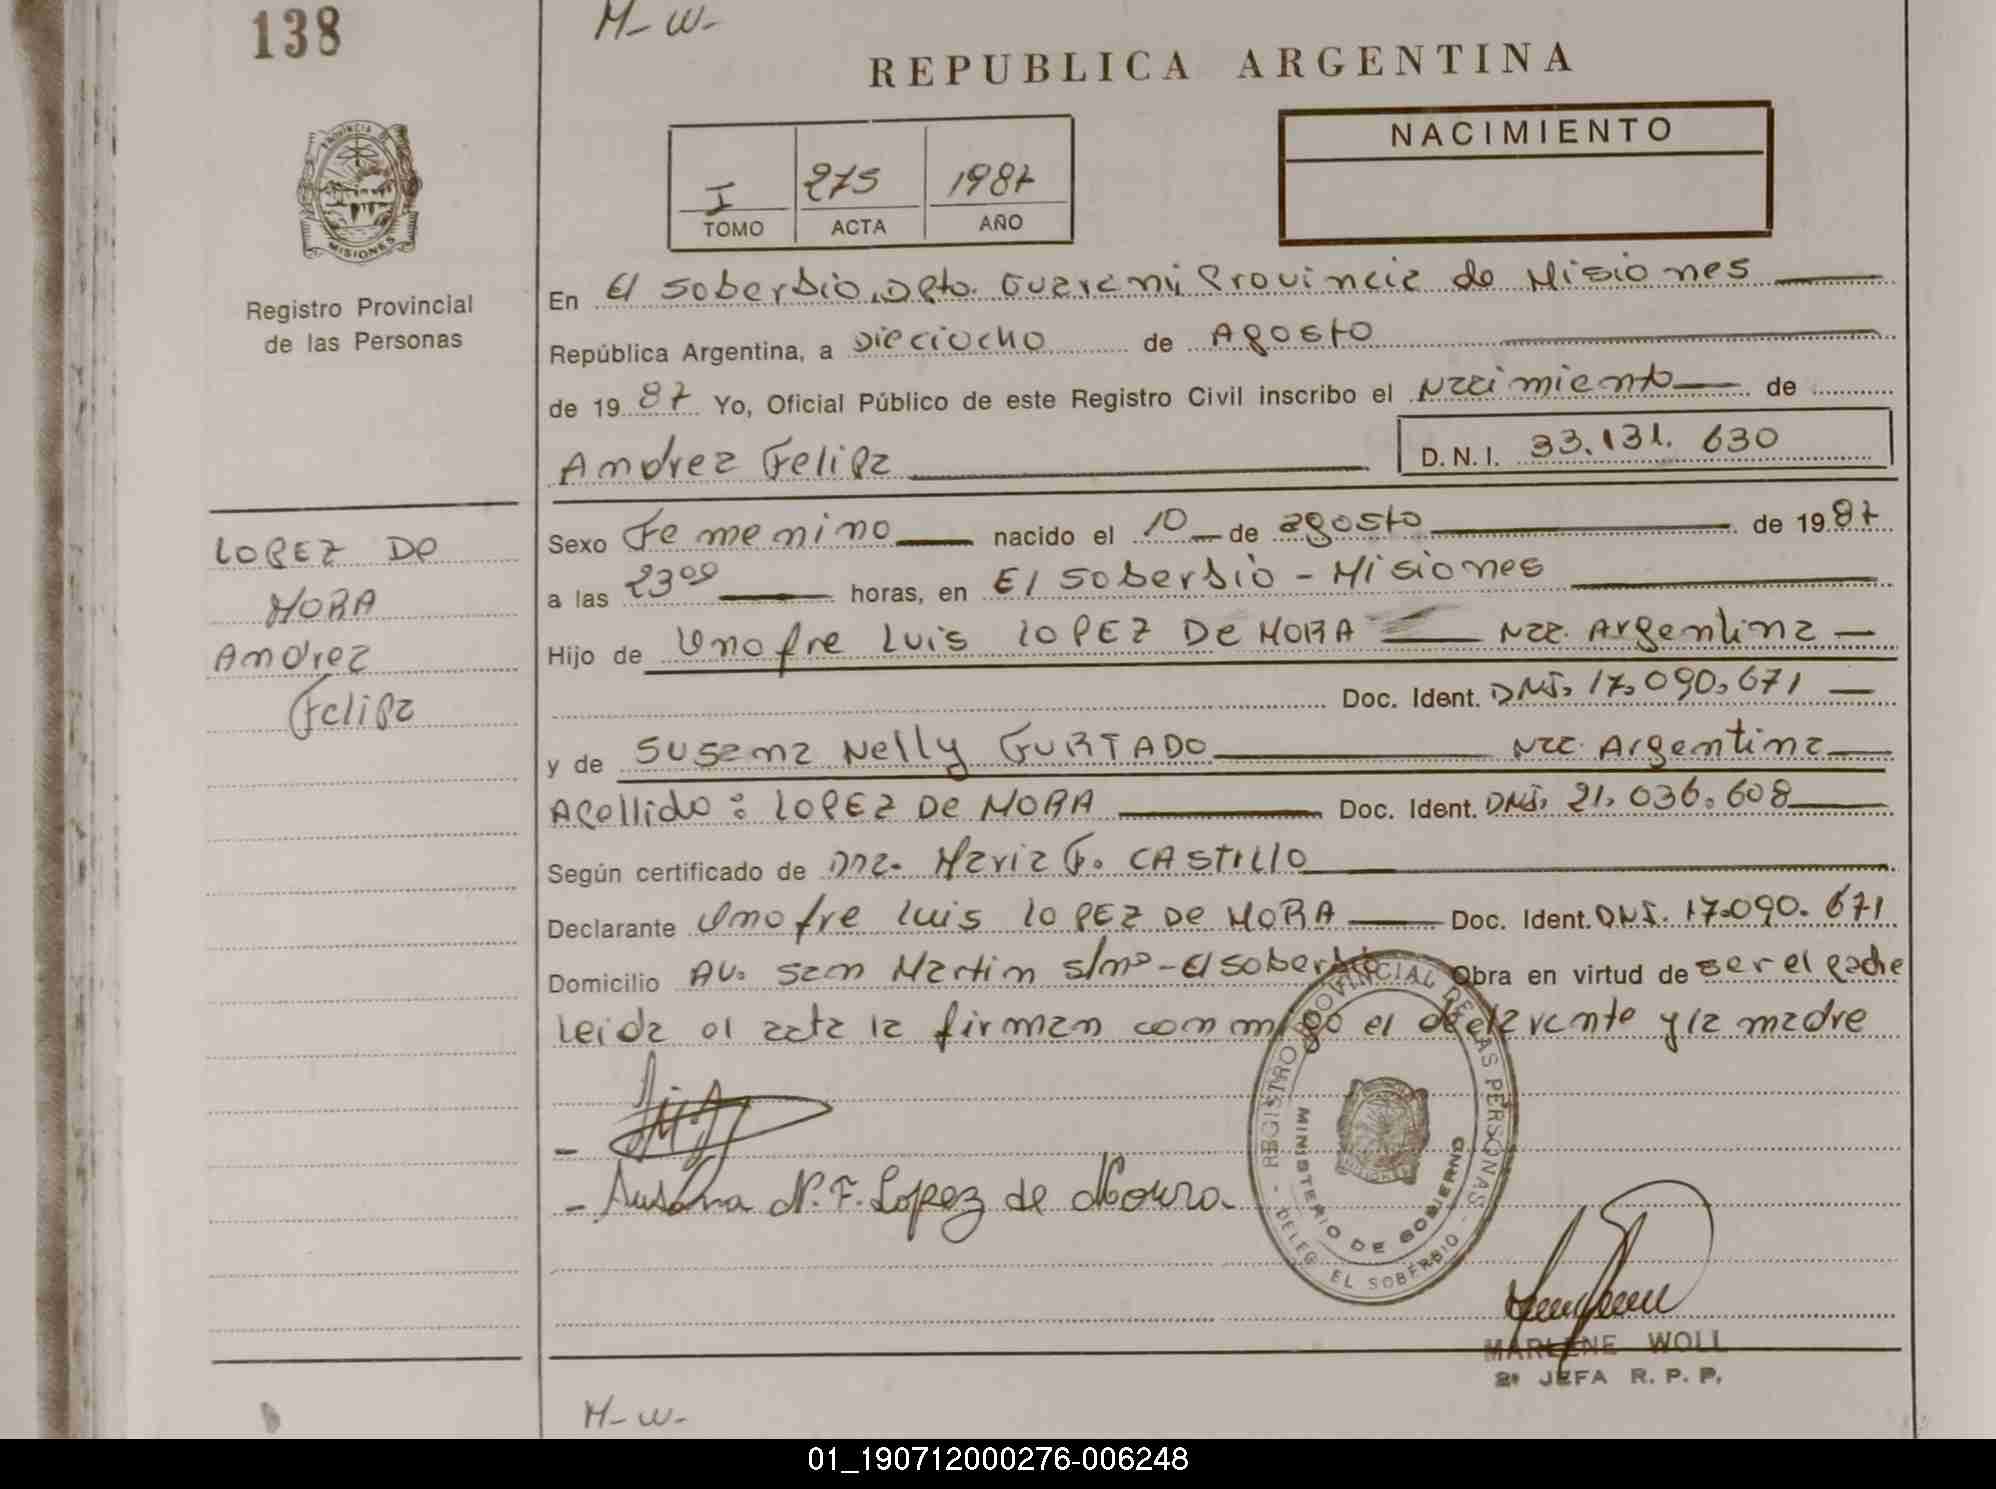 138
M-W-
REPUBLICA ARGENTINA
I 275 1987
TOMO ACTA AÑO
NACIMIENTO
PROVINCIA DE
MISIONES
Registro Provincial
de las Personas
En El Soberbio, Dpto. Guarani, Provincia de Misiones
República Argentina, a Dieciocho de Agosto
de 1987 Yo, Oficial Público de este Registro Civil inscribo el Nacimiento de
Andrea Felipa
D.N.I. 33.131.630
LOPEZ DE
MORA
Andrea
Felipa
Sexo Femenino nacido el 10 de agosto de 1987
a las 23⁰⁰ horas, en El Soberbio - Misiones
Hijo de Onofre Luis LOPEZ DE MORA Nac. Argentina
Doc. Ident. DNI. 17.090.671
y de Susana Nelly FURTADO Nac. Argentina
Apellido: LOPEZ DE MORA Doc. Ident. DNI. 21.036.608
Según certificado de Dra. Maria F. CASTILLO
Declarante Onofre Luis LOPEZ DE MORA Doc. Ident. DNI. 17.090.671
Domicilio Av. San Martin s/nº - El Soberbio Obra en virtud de ser el padre
Leida el acta la firman conmigo el declarante y la madre
- Susana N. F. Lopez de Moura.
REGISTRO PROVINCIAL DE LAS PERSONAS
MINISTERIO DE GOBIERNO
- DELEG. EL SOBERBIO -
MARLENE WOLL
2ª JEFA R. P. P.
M-W-
01_190712000276-006248